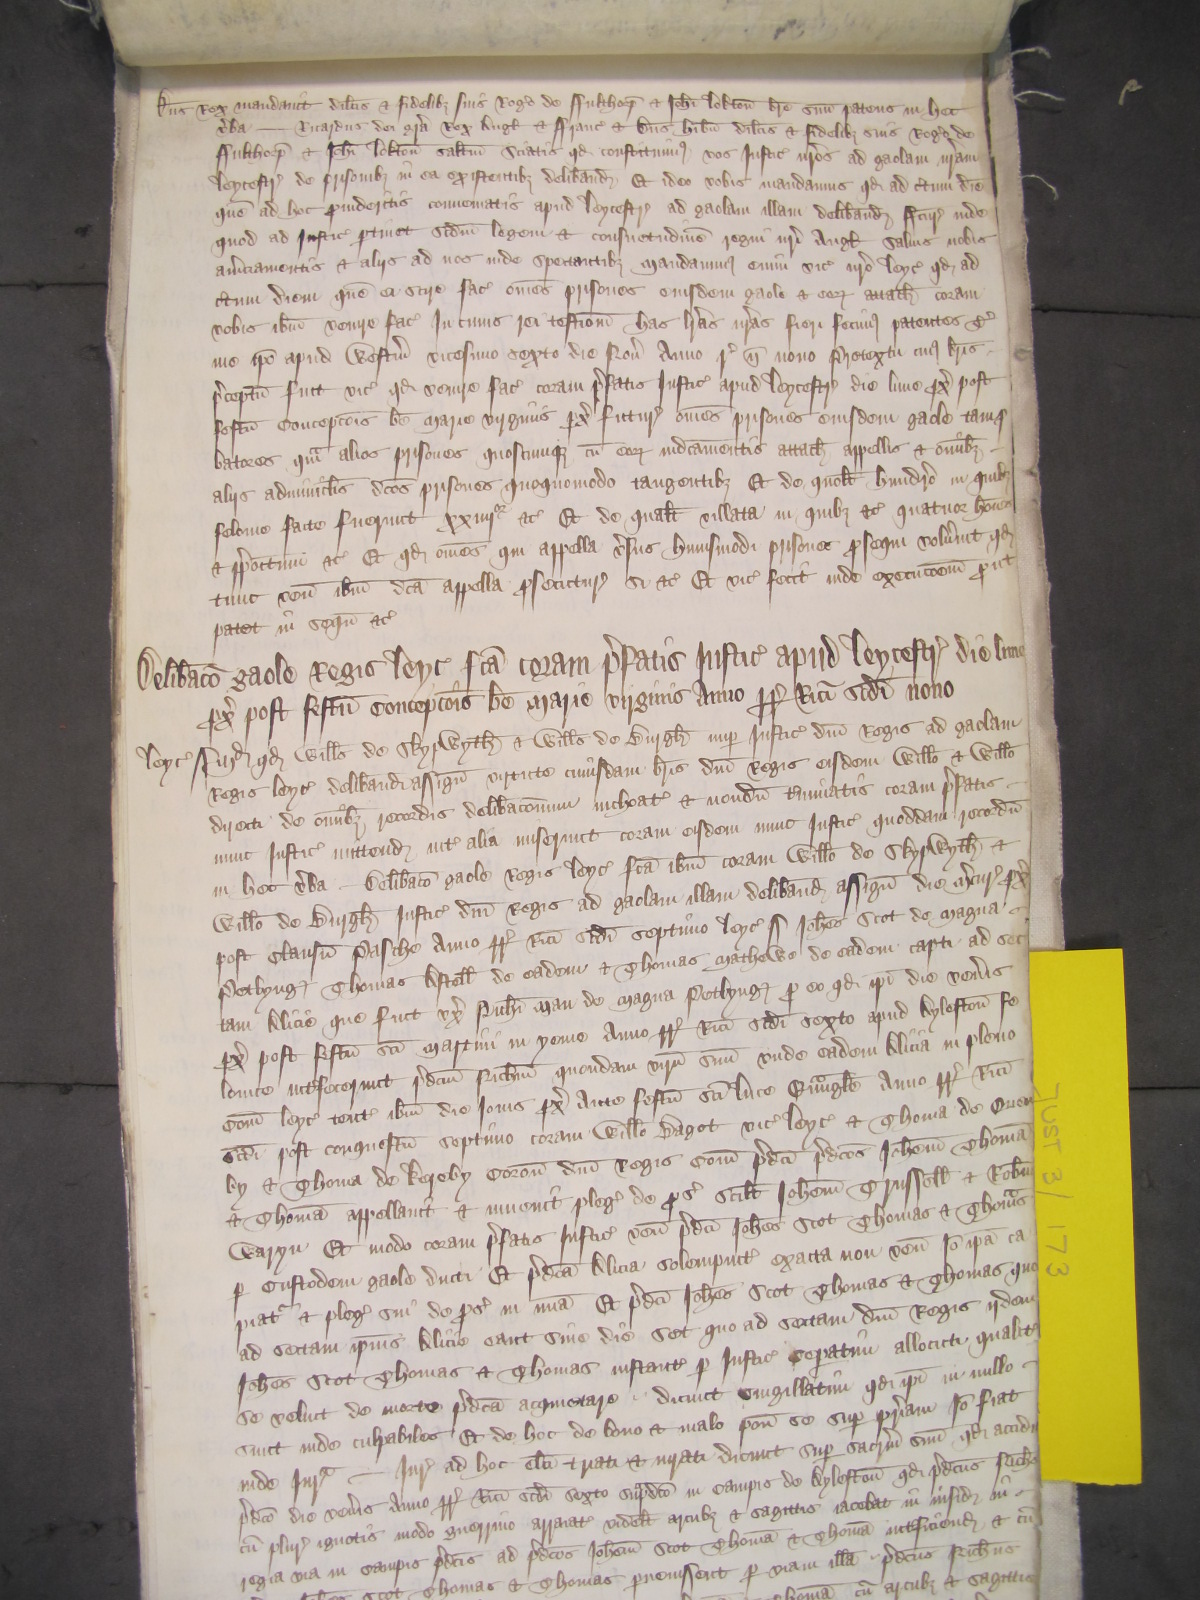 Dns Rex mandavit dilcis & fidelibz suis Rogo de ffulthorp & Johi Lokton bre suu patens in hec
vba — Ricardus dei gra Rex Angl & ffranc & Dns Hibn dilcis & fidelibz suis Rogo de
ffulthorp & Johi Lokton saltm Sciatis qd constituim9 vos Justic nros ad gaolam nram
Leycestr de prisonibz in ea existentibz deliband Et ideo vobis mandamus qd ad ctum diem
que ad hoc provideritis conveniatis apud Leycestr ad gaolam illam deliband ffcur inde
quod ad Justic ptinet scdm legem & consuetudine regni nri Angl Salvis nobis
amciamentis & aliis ad nos inde spectantibz Mandavim9 enim vic nro Leyc qd ad
ctum diem que ei scire fac omes prisones eiusdem gaole & eor attach coram
vobis ibm venire fac In cuius rei testiom has lras nras fieri fecim9 patentes T
me ipo apud Westm vicesimo sexto die Nov Anno r n nono Pretextu cui9 bris
pceptu fuit vic qd venire fac coram pfatis Justic apud Leycestr die lune px post
festu Concepcois be Marie virginis px futur omes prisones eiusdem gaole tam p
batores qm alios prisones quoscumq cu eor indictamentis attach appellis & omibz
aliis adminiclis dcos prisones quoquomodo tangentibz Et de quolt hundro in quibz
felonie facte fuerunt xxiiij or &c Et de qualt villata in quibz &c quatuor hoies
& ppoitum &c Et qd omes qui appella vsus huiusmodi prisones psequi volunt qd
tunc ven ibm dca appella psecutur si &c Et vic fecit inde execucoem put
patet in sequn &c
Delibaco gaole Regis Leyc fca coram pfatis Justic apud Leycestr die lune
px post festu Concepcois be Marie virginis Anno rr Rici scdi nono
Leyc ss Jur qd Wills de Skypwyth & Wills de Burgh nup Justic dni Regis ad gaolam
Regis Leyc deliband assign virtute cuiusdam bris dni Regis eisdem Willo & Willo
directi de omibz recordis delibacionum inchoat & nondu tminatis coram pfatis
nunc Justic mittend int alia miserunt coram eisdem nunc Justic quoddam recordu
in hec vba — Delibaco gaole Regis Leyc fca ibm coram Willo de Skypwyth &
Willo de Burgh Justic dni Regis ad gaolam illam deliband assign die mcur px
post clausu Pasche Anno rr Rici scdi septimo Leyc ss Johes Scot de magna
Petlyng Thomas Astell de eadem & Thomas Mathewe de eadem capti ad sec
tam Alicie que fuit ux Richi Man de magna Petlyng p eo qd ipi die venis
px post festu sci Martini in yeme Anno rr Rici scdi sexto apud Kyleston fe
lonice intfecerunt pdcum Richm quondam viru suu unde eadem Alicia in pleno
Com Leyc tent ibm die Jovis px Ante festu sci Luce Ewangle Anno rr Rici
scdi post conquestu septimo coram Willo Bagot vic Leyc & Thoma de Quen
by & Thoma de Kereby Coron dni Regis Com pdci pdcos Johem Thoma
& Thoma appellavit & invenit pleg de ps scilt Johem Trussell & Robtu
Waryn Et modo coram pfatis Justic ven pdci Johes Scot Thomas & Thomas
p Custodem gaole ducti Et pdca Alicia solempnit exacta non ven Io ipa ca
piat & pleg sui de ps in mia Et pdci Johes Scot Thomas & Thomas quo
ad sectam ipius Alicie eant sine die Set quo ad sectam dni Regis iidem
Johes Scot Thomas & Thomas instant p Justic sepatim allocuti qualit
se velint de morte pdca acquietare dicunt singillatim qd ipi in nullo
sunt inde culpabiles Et de hoc de bono & malo pon se sup priam Io fiat
inde Jur — Jur ad hoc elci triati & iurati dicunt sup sacrm suu qd accidit
pdco die venis Anno rr Rici scdi sexto supdco in campis de Kyleston qd pdcus Richs
cu plur ignotis modo guerrino arraiat videlt arcubz & sagittis iacebat in insid in
regia via in campis pdcis ad pdcos Johem Scot Thoma & Thoma intficiend & cu
Johes Scot Thomas & Thomas pvenissent p viam illa pdcus Richus
Thoma cu arcubz & sagittis
JUST 3/ 173